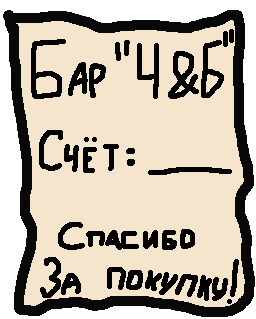 Бар "Ч&Б"
Счёт: ____
Спасибо
За покупку!